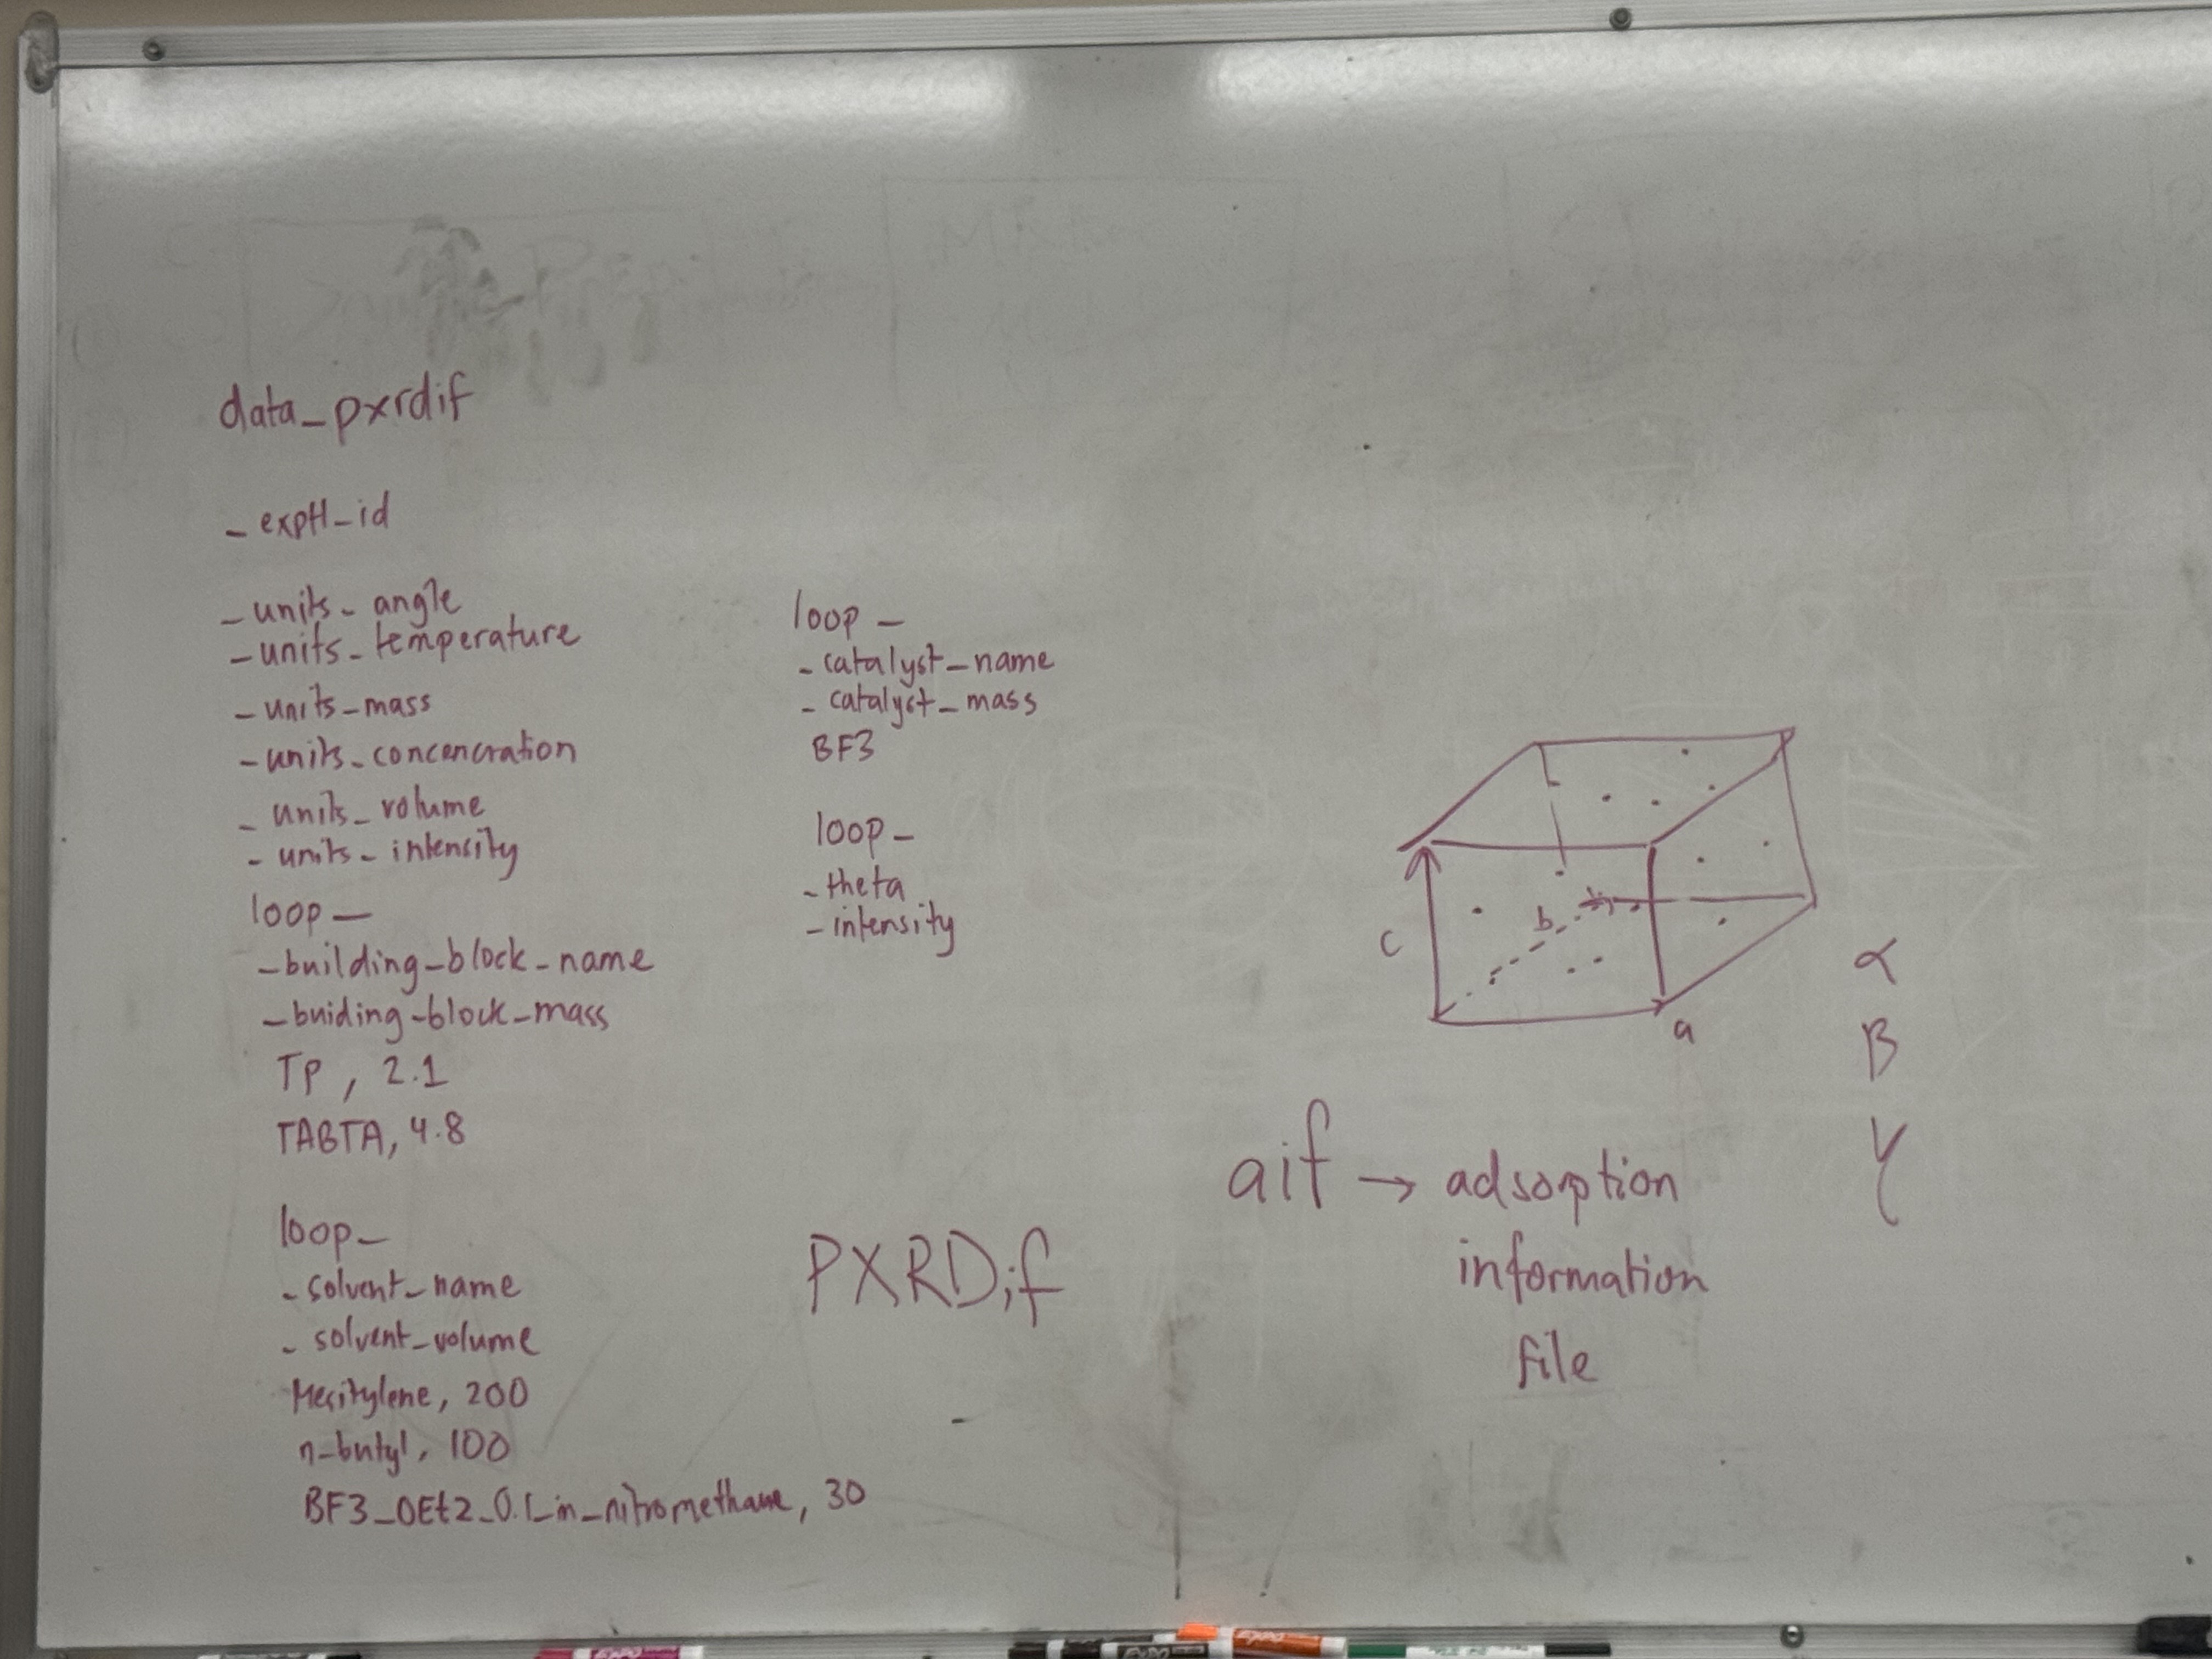 data_pxrdif
_exptl_id
_units_angle
_units_temperature
_units_mass
_units_concencration
_units_volume
_units_intensity
loop_
_building_block_name
_buiding_block_mass
TP, 2.1
TABTA, 4.8
loop_
_solvent_name
_solvent_volume
Mesitylene, 200
n_butyl, 100
BF3_OEt2_0.1_in_nitromethane, 30
loop_
_catalyst_name
_catalyst_mass
BF3
loop_
_theta
_intensity
PXRDif
c
b
a
α
β
γ
aif → adsorption
information
file